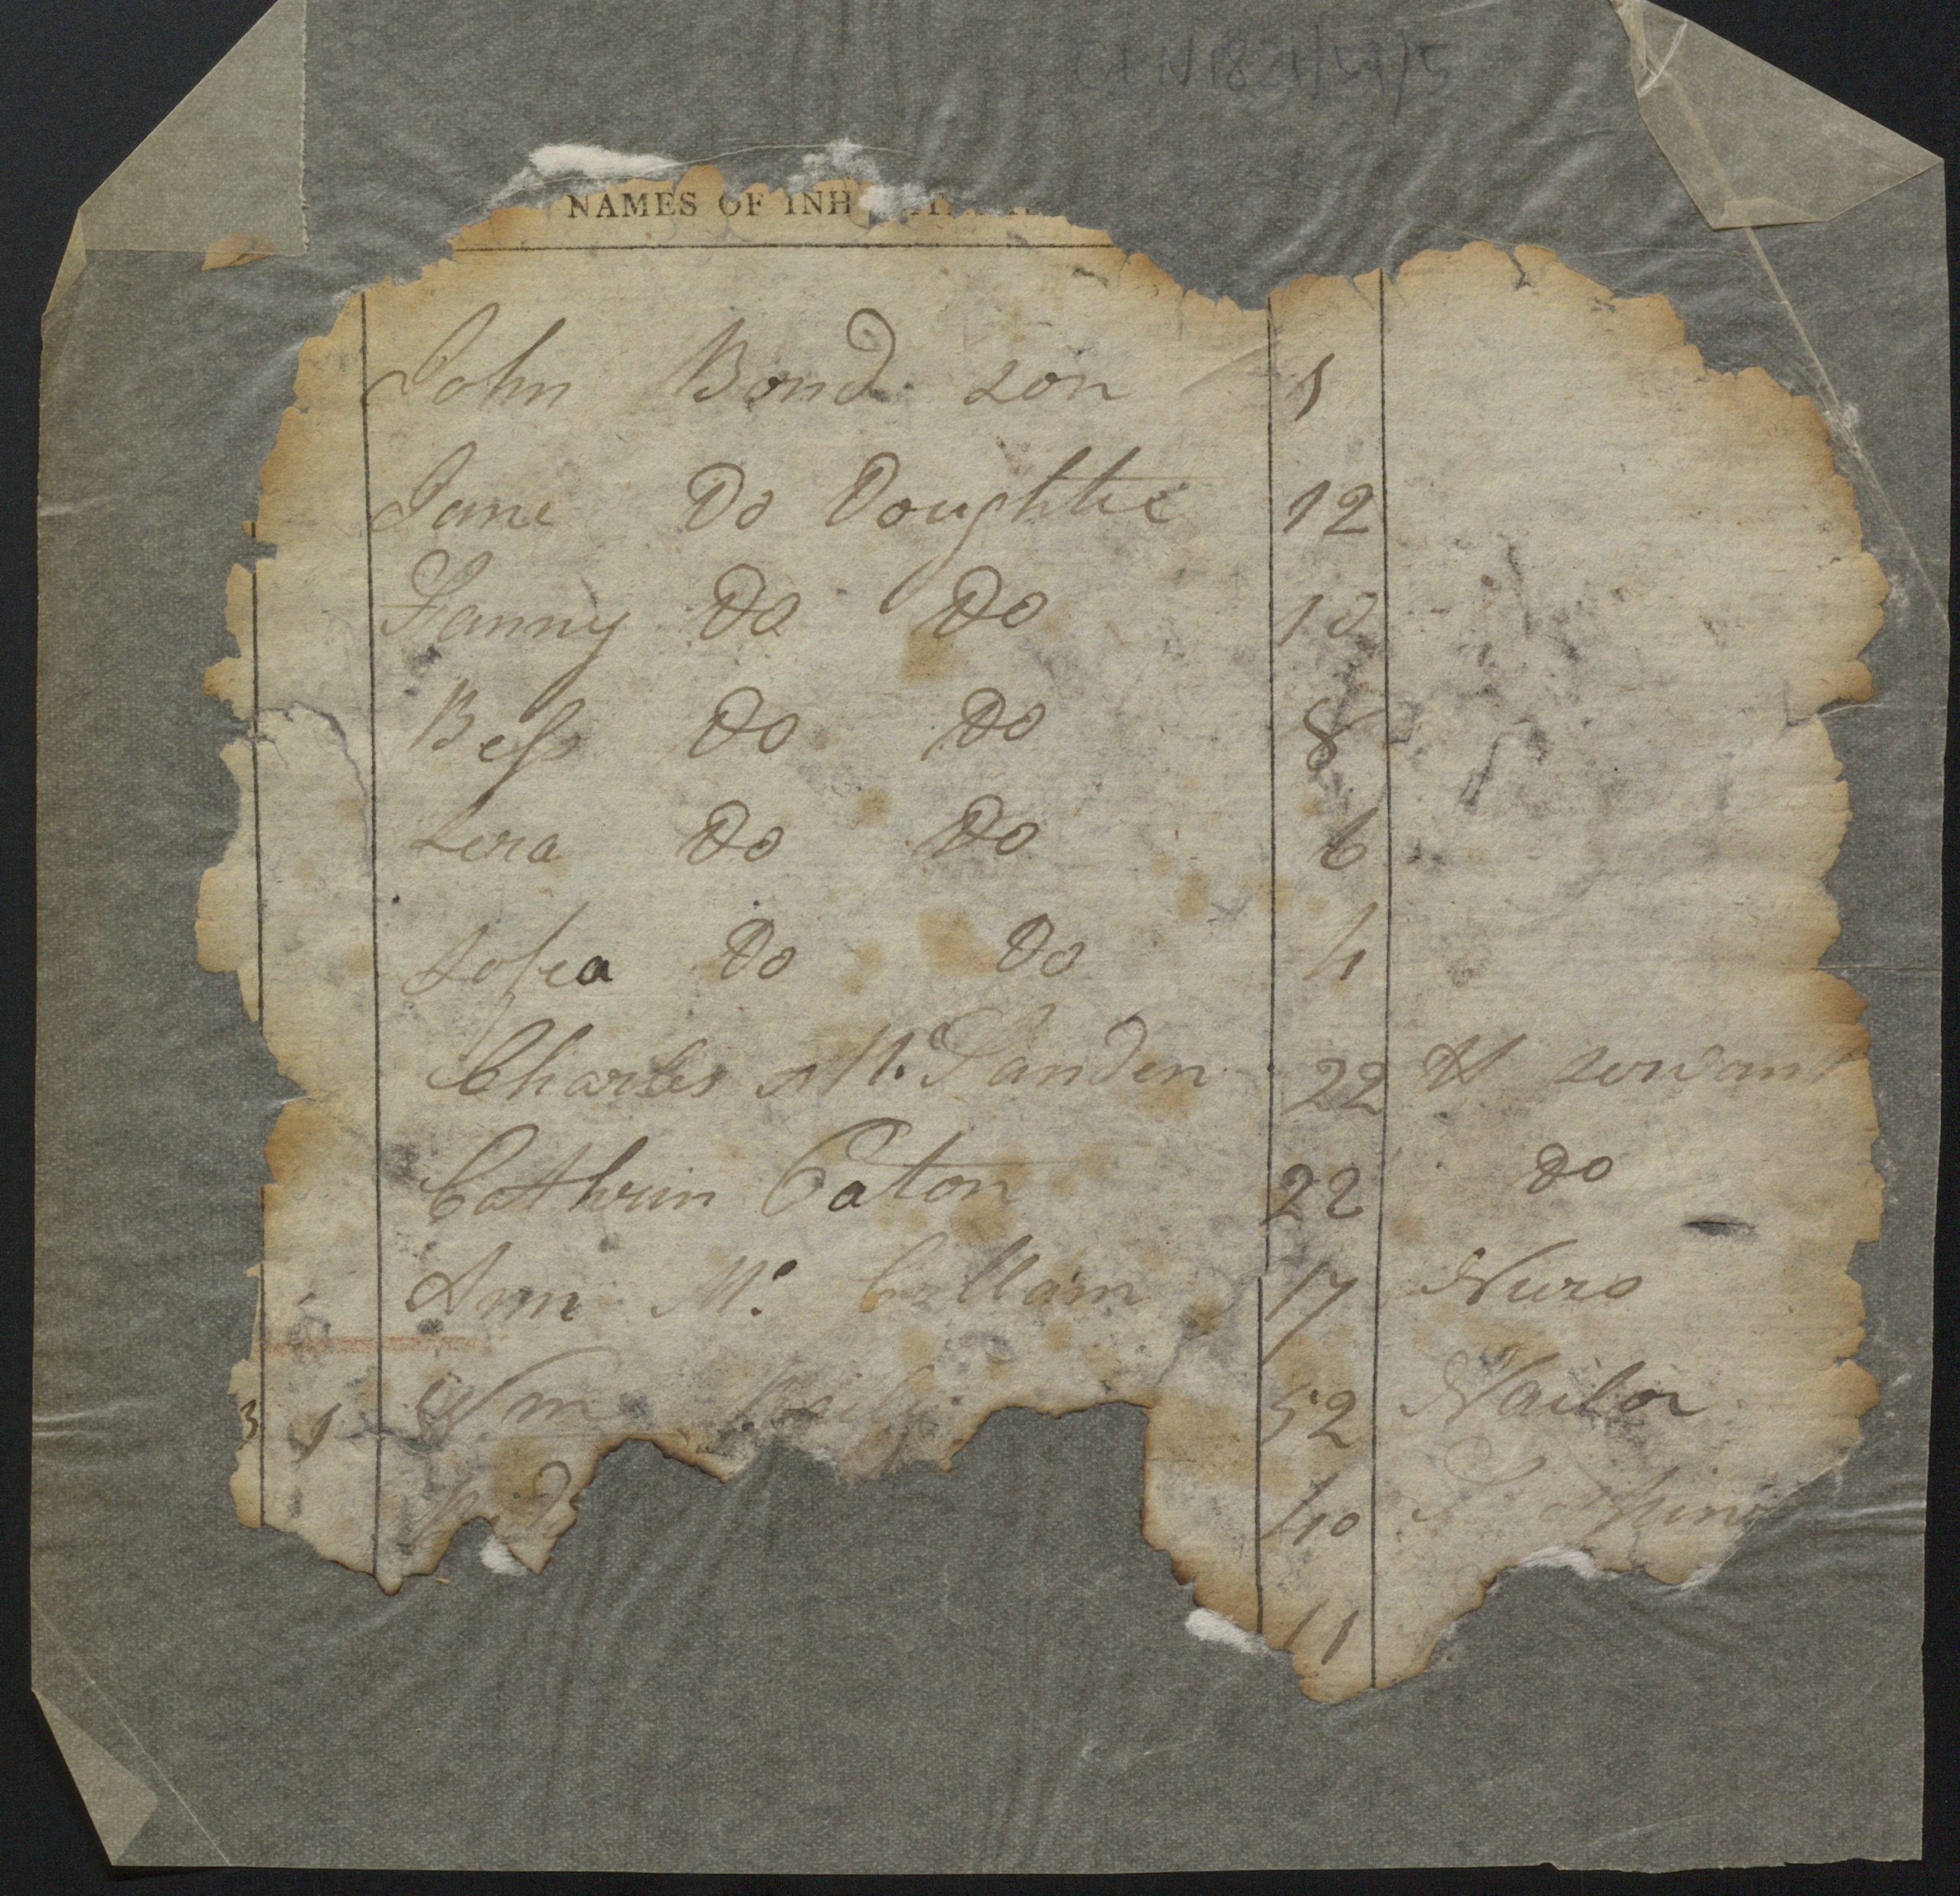 NAMES OF INH
John Bond son 1
Jane Do Doughter 12
Fanny Do Do 10
Bess Do Do 8
Sera Do Do 6
Sofia Do Do 4
Charles Mc Fanden 22 H servant
Cathrin Eaton 22 Do
Ann Mc Collam 17 Nurs
3 1 Wm 52 Nailor
40
11